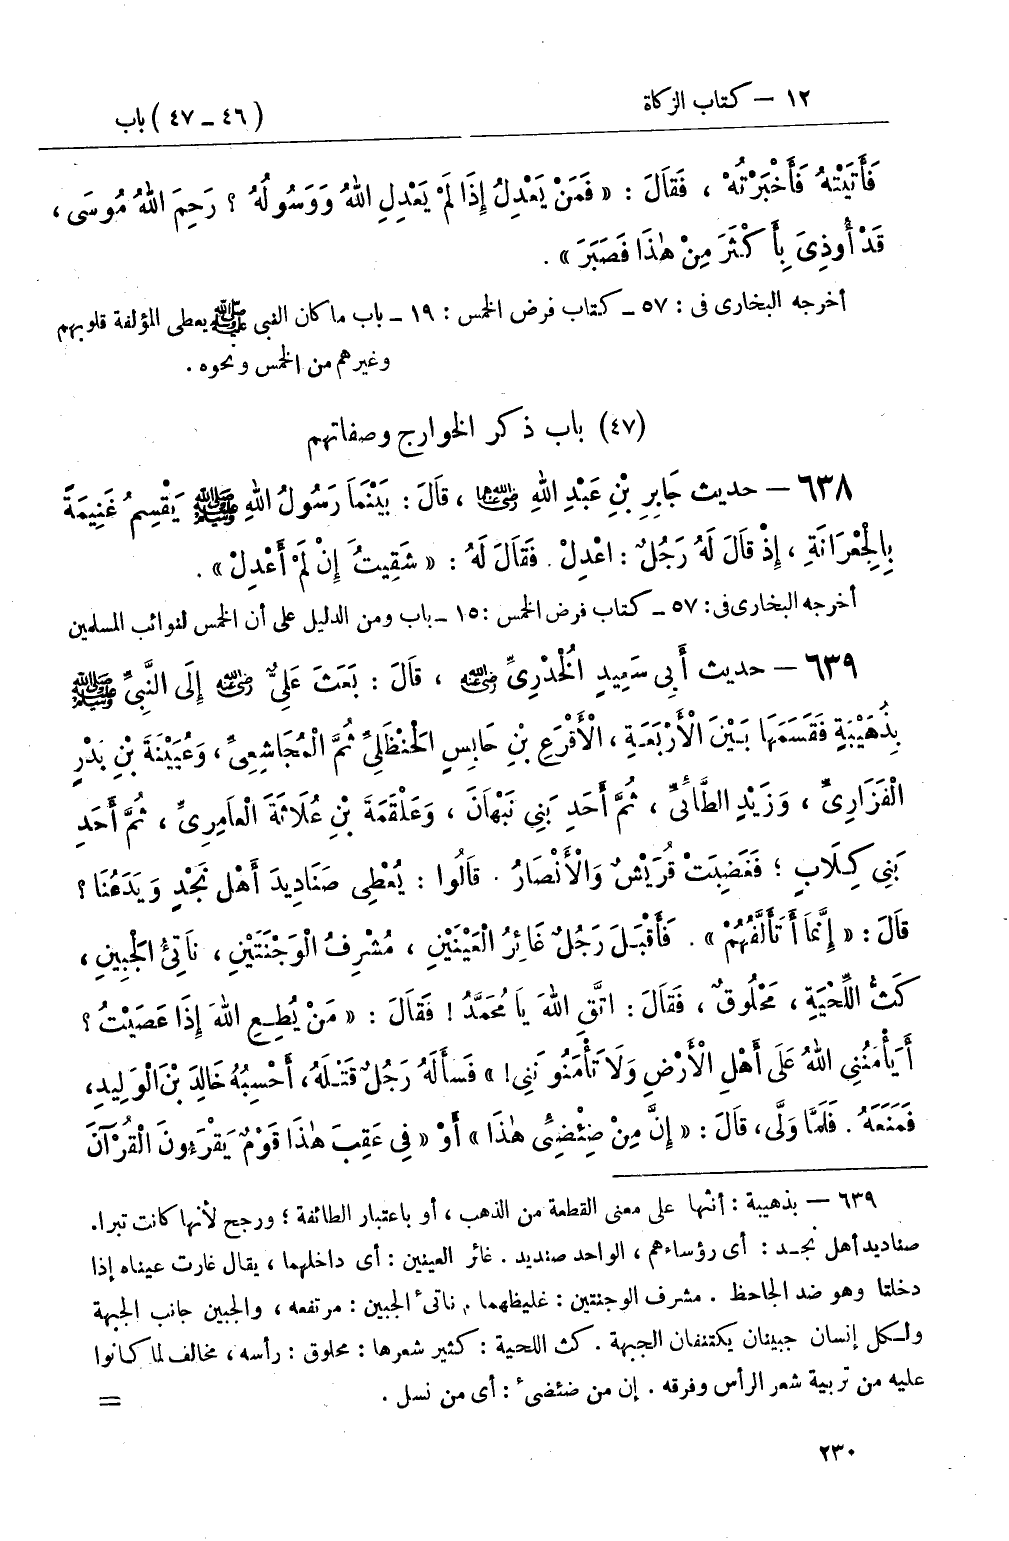 ١٢ – كتاب الزكاة
(٤٦ – ٤٧) باب
فَأَتَيْتُهُ فَأَخْبَرْتُهُ ، فَقَالَ : « فَمَنْ يَعْدِلُ إِذَا لَمْ يَعْدِلِ اللهُ وَرَسُولُهُ ؟ رَحِمَ اللهُ مُوسَى ،
قَدْ أُوذِىَ بِأَكْثَرَ مِنْ هٰذَا فَصَبَرَ » .
أخرجه البخارى فى : ٥٧ – كتاب فرض الخمس : ١٩ – باب ما كان النبى ﷺ يعطى المؤلفة قلوبهم
وغيرهم من الخمس ونحوه .
(٤٧) باب ذكر الخوارج وصفاتهم
٦٣٨ – حديث جَابِرِ بْنِ عَبْدِ اللهِ رضي الله عنهما ، قَالَ : بَيْنَمَا رَسُولُ اللهِ ﷺ يَقْسِمُ غَنِيمَةً
بِالْجِعْرَانَةِ ، إِذْ قَالَ لَهُ رَجُلٌ : اعْدِلْ . فَقَالَ لَهُ : « شَقِيتُ إِنْ لَمْ أَعْدِلْ » .
أخرجه البخارى فى : ٥٧ – كتاب فرض الخمس : ١٥ – باب ومن الدليل على أن الخمس لنوائب المسلمين
٦٣٩ – حديث أَبِى سَعِيدٍ الْخُدْرِىِّ رضي الله عنه ، قَالَ : بَعَثَ عَلِىٌّ رضي الله عنه إِلَى النَّبِىِّ ﷺ
بِذُهَيْبَةٍ فَقَسَمَهَا بَيْنَ الْأَرْبَعَةِ ، الْأَقْرَعِ بْنِ حَابِسٍ الْحَنْظَلِىِّ ثُمَّ الْمُجَاشِعِىِّ ، وَعُيَيْنَةَ بْنِ بَدْرٍ
الْفَزَارِىِّ ، وَزَيْدٍ الطَّائِىِّ ، ثُمَّ أَحَدِ بَنِي نَبْهَانَ ، وَعَلْقَمَةَ بْنِ عُلَاثَةَ الْعَامِرِىِّ ، ثُمَّ أَحَدِ
بَنِي كِلَابٍ ؛ فَغَضِبَتْ قُرَيْشٌ وَالْأَنْصَارُ . قَالُوا : يُعْطِى صَنَادِيدَ أَهْلِ نَجْدٍ وَيَدَعُنَا ؟
قَالَ : « إِنَّمَا أَتَأَلَّفُهُمْ » . فَأَقْبَلَ رَجُلٌ غَائِرُ الْعَيْنَيْنِ ، مُشْرِفُ الْوَجْنَتَيْنِ ، نَاتِئُ الْجَبِينِ ،
كَثُّ اللِّحْيَةِ ، مَحْلُوقٌ ، فَقَالَ : اتَّقِ اللهَ يَا مُحَمَّدُ ! فَقَالَ : « مَنْ يُطِعِ اللهَ إِذَا عَصَيْتُ ؟
أَيَأْمَنُنِي اللهُ عَلَى أَهْلِ الْأَرْضِ وَلَا تَأْمَنُونَنِي ! » فَسَأَلَهُ رَجُلٌ قَتْلَهُ ، أَحْسِبُهُ خَالِدَ بْنَ الْوَلِيدِ ،
فَمَنَعَهُ . فَلَمَّا وَلَّى ، قَالَ : « إِنَّ مِنْ ضِئْضِئِ هٰذَا » أَوْ « فِي عَقِبِ هٰذَا قَوْمٌ يَقْرَءُونَ الْقُرْآنَ
٦٣٩ – بذهيبة : أنثها على معنى القطعة من الذهب ، أو باعتبار الطائفة ؛ ورجح لأنها كانت تبرا .
صناديد أهل نجد : أى رؤساءهم ، الواحد صنديد . غائر العينين : أى داخلهما ، يقال غارت عيناه إذا
دخلتا وهو ضد الجاحظ . مشرف الوجنتين : غليظهما . ناتىء الجبين : مرتفعه ، والجبين جانب الجبهة
ولكل إنسان جبينان يكتنفان الجبهة . كث اللحية : كثير شعرها : محلوق : رأسه ، مخالف لما كانوا
عليه من تربية شعر الرأس وفرقه . إن من ضئضىء : أى من نسل .
=
٢٣٠